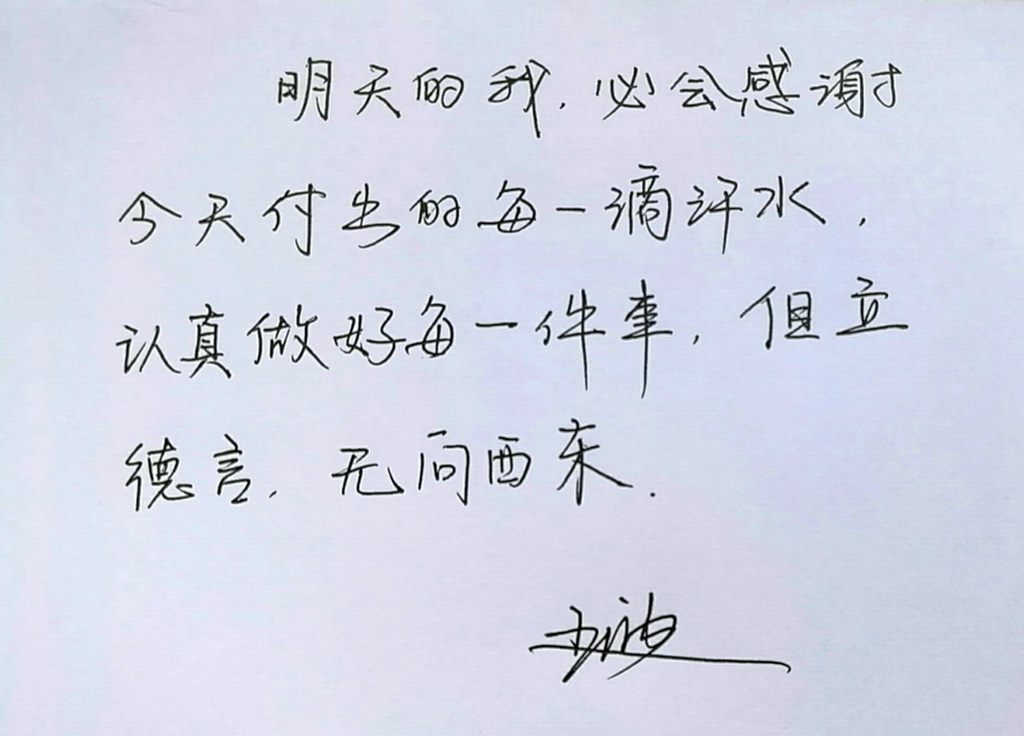 明天的我，必会感谢
今天付出的每一滴汗水，
认真做好每一件事，但立
德言，无问西东.
王波